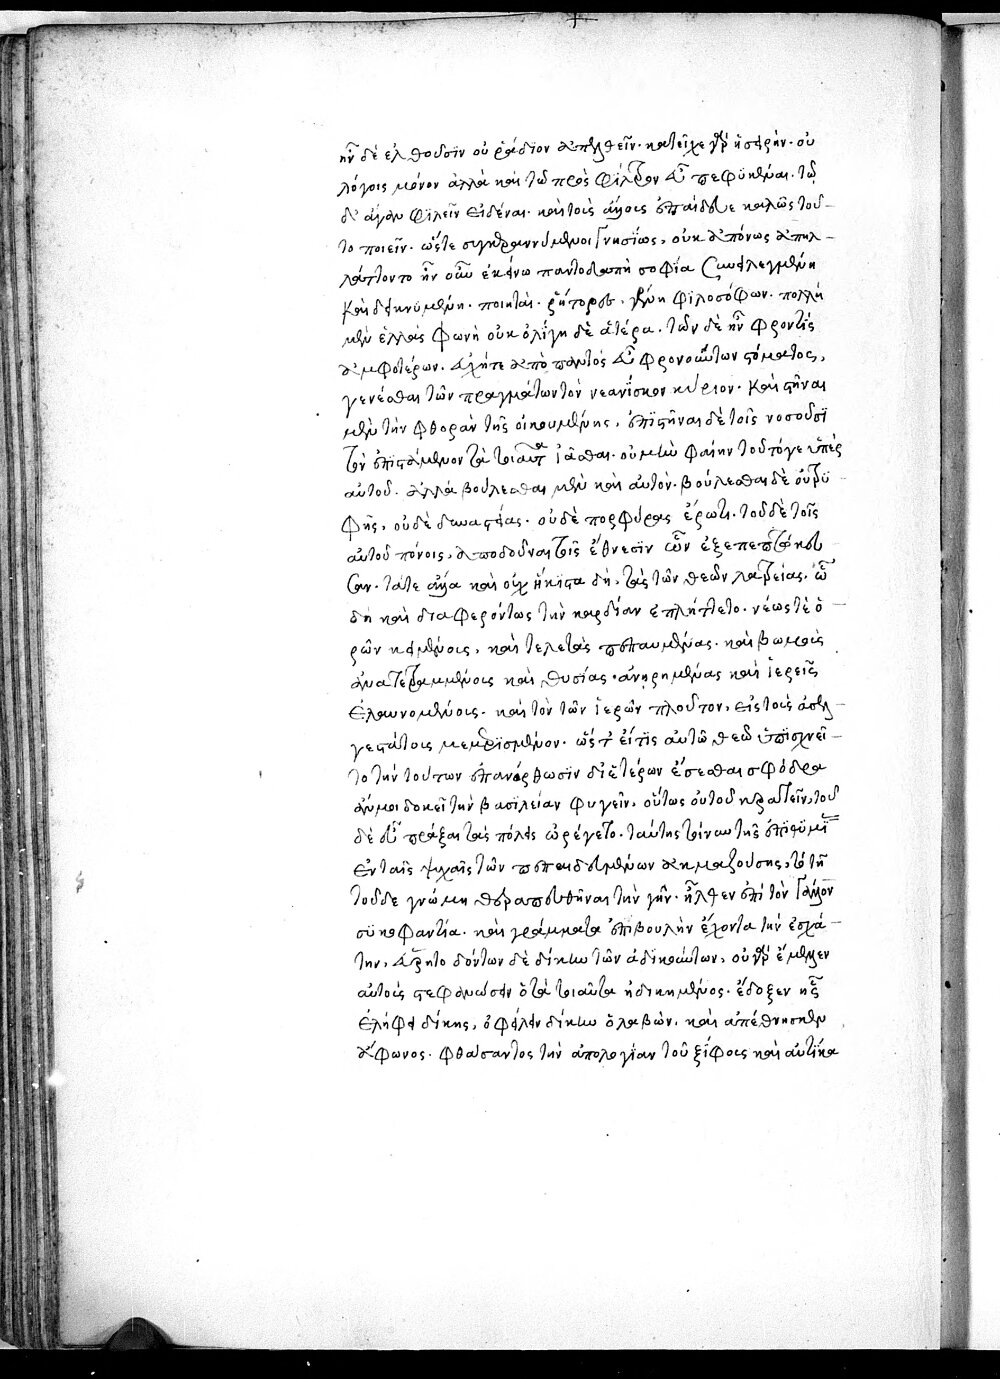 ἦν δὲ ἐλθοῦσϊν οὐ ῥάδϊον ἀπελθεῖν. κατεῖχε γὰρ ἡ σειρὴν. οὐ
λόγοις μόνον ἀλλὰ καὶ τῶ πρὸς φίλτρον εὖ πεφϋκέναι. τῶ
δ' ἄγαν φϊλεῖν εἰδέναι. καὶ τοὺς ἄλλοις ἐπαίδευε καλῶς τοῦ-
το ποιεῖν. ὥστε συγκεραννύμενοι γνησίως, οὐκ ἀπόνως ἀπηλ-
λάττοντο ἦν οὖν ἐκείνω παντοδαπὴ σοφΐα συνειλεγμένη
καὶ δεικνϋμένη. ποιηταὶ. ῥήτορες. γένη φϊλοσόφων. πολλὴ
μὲν ἑλλὰς φωνὴ οὐκ ὀλίγη δὲ ἁτέρα. τῶν δὲ ἦν φροντὶς
ἀμφοτέρων. εὐχή τε ἀπὸ παντὸς εὖ φρονοῦντων στόματος,
γενέσθαι τῶν πραγμάτων τὸν νεανίσκον κύριον. καὶ στῆναι
μὲν τὴν φθορὰν τῆς οἰκουμένης, ἐπϊστῆναι δὲ τοῖς νοσοῦσϊ
τὸν ἐπϊστάμενον τὰ τοιαῦτα ἰᾶσθαι. οὐ μὲν φαίην τοῦτό γε ὑπὲρ
αὐτοῦ. ἀλλὰ βούλεσθαι μὲν καὶ αὐτὸν. βούλεσθαι δὲ οὐ τρϋ
φῆς, οὐδὲ δυναστείας. οὐδὲ πορφύρας ἔρωτι. τοῦ δὲ τοῖς
αὐτοῦ πόνοις, ἀποδοῦναι τοῖς ἔθνεσϊν ὧν ἐξεπεπτώκει
σαν. τά τε ἄλλα καὶ οὐχ ἥκϊστα δὴ, τὰς τῶν θεῶν λατρείας. ὃ
δὴ καὶ διαφερόντως τὴν καρδίαν ἐπλήττετο. νέως τὲ ὁ-
ρῶν κειμένοις, καὶ τελετὰς πεπαυμένας. καὶ βωμοὺς
ἀνατετραμμένοις καὶ θυσίας. ἀνῃρημένας καὶ ἱερεῖς
ἐλαυνομένοις. καὶ τὸν τῶν ἱερῶν πλοῦτον, εἰς τοὺς ἀσελ-
γεστάτοις μεμερϊσμένον. ὥστ' εἴ τϊς αὐτῶ θεῶ ὑπϊσχνεῖ-
το τὴν τούτων ἐπανόρθωσϊν δι' ἑτέρων ἔσεσθαι σφόδρα
ἄν μοι δοκεῖ τὴν βασϊλείαν φυγεῖν, οὕτως οὐ τοῦ κρατεῖν, τοῦ
δὲ εὖ πράξαι τὰς πόλεις ὠρέγετο. ταύτης τοίνυν τῆς ἐπϊθϋμΐ
ἐν ταῖς ψυχαῖς τῶν πεπαιδευμένων ἀκμαζούσης, τὸ τῆ
τοῦδε γνώμη θεραπευθῆναι τὴν γῆν. ἦλθεν ἐπὶ τὸν γάλλον
σϋκοφαντία. καὶ γράμματα ἐπϊβουλὴν ἔχοντα τὴν ἐσχά-
την, εὐρητο δόντων δὲ δίκην τῶν ἀδικούντων, οὐ γὰρ ἔμελλεν
αὐτοὺς στεφανώσειν ὁ τὰ τοιαῦτα ἠδικημένος. ἔδοξεν ἧς
ἐλήφει δίκης, ὀφείλειν δίκην ὁ λαβὼν. καὶ ἀπέθνησκεν
ἄφωνος. φθάσαντος τὴν ἀπολογίαν τοῦ ξίφοις καὶ αὐτίκα